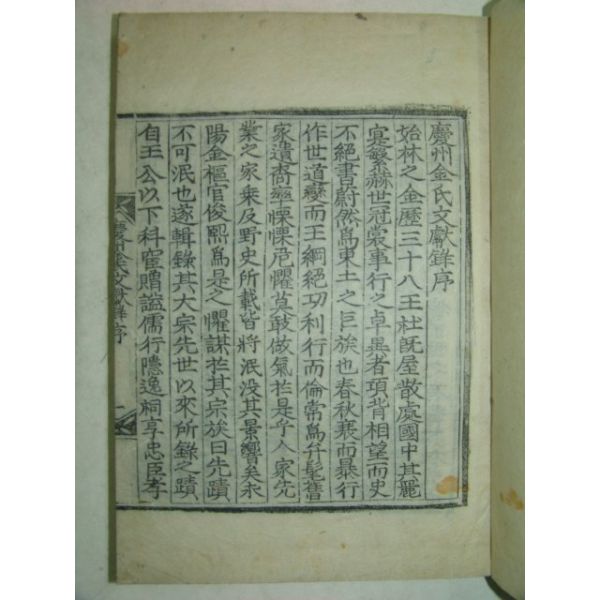 慶州金氏文獻錄序
始林之金歷三十八王社旣屋散處國中其麗
寔繁赫世冠裳事行之卓異者項背相望而史
不絕書蔚然爲東土之巨族也春秋衰而暴行
作世道變而王綱絕功利行而倫常爲弁髦舊
家遺裔率慄慄危懼莫敢做氣於是乎人家先
業之家乘及野史所載皆將泯没其景響矣永
陽金樞官俊熙爲是之懼謀於其宗族曰先蹟
不可泯也遂輯錄其大宗先世以來所錄之蹟
自王公以下科宦贈謚儒行隱逸祠享忠臣孝
慶州金氏文獻錄序
一